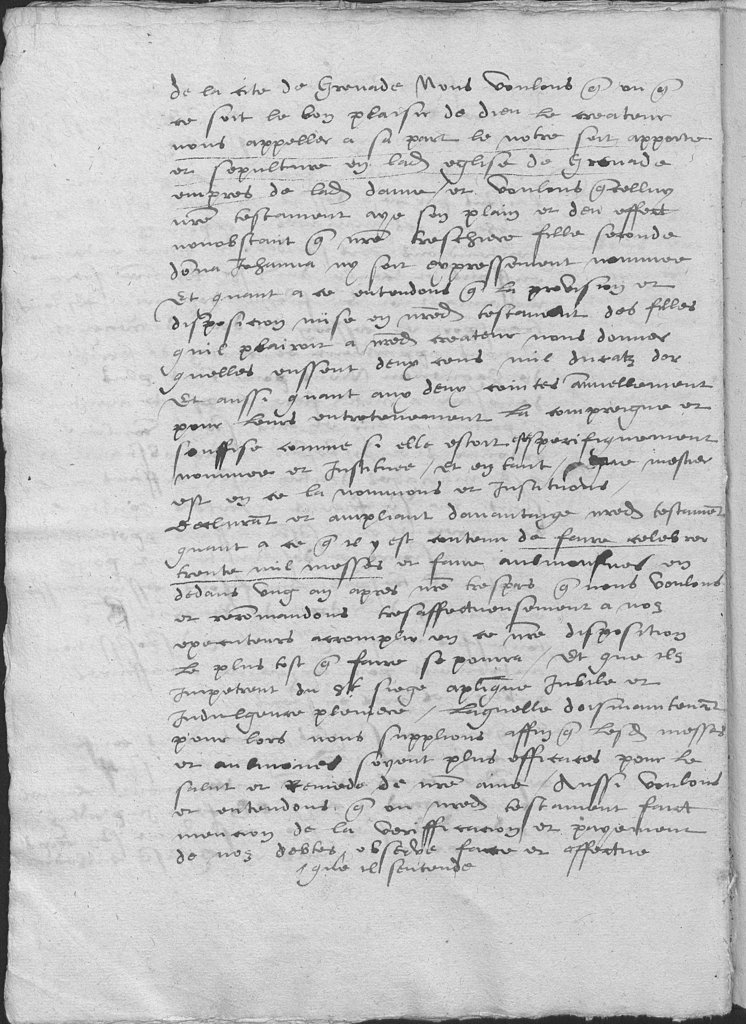 de la cite de Grenade Nous voulons q̃ ou q̃
ce soit le bon plaisir de dieu le createur
nous appeller a sa part le notre soit apporte
et sepulture en lad eglise de Grenade
empres de lad dame / et voulons q̃ celluy
nr̃e testament aye son plain et deu effect
nonobstant q̃ nr̃e treschiere fille seconde
dona Johanna ny soit expressement nommee
Et quant a ce entendons q̃ la provision et
disposicion mise en nr̃ed testament des filles
quil plairoit a nr̃ed createur nous donner
quelles eussent deux cens mil ducatz dor
Et aussi quant aux deux comtes annuellement
pour leurs entretenement la compreigne et
souffise comme si elle estoit especifiquement
nommee et Instituee / Et en tant que mestier
est en ce la nommons et Instituons /
Declairant et ampliant davantaige nr̃ed testament
quant a ce q̃ il y est contenu de faire celebrer
trente mil messes et faire aulmosnes en
dedans ung an apres nr̃e trespas q̃ nous voulons
et recõmandons tresaffectueusement a noz
executeurs accomplir en ce nr̃e disposition
le plus tost q̃ faire se pourra / Et que ilz
Impetrent du st siege aplique Jubile et
Indulgence pleniere / laquelle doismaintenant
pour lors nous supplions affin q̃ lesd messes
et aulmones soyent plus efficaces pour le
salut et Remede de nr̃e ame / Aussi voulons
et entendons q̃ ou nr̃ed testament faict
mencion de la verifficacion et payement
de noz debtes, observe face et effectue
que il sentende